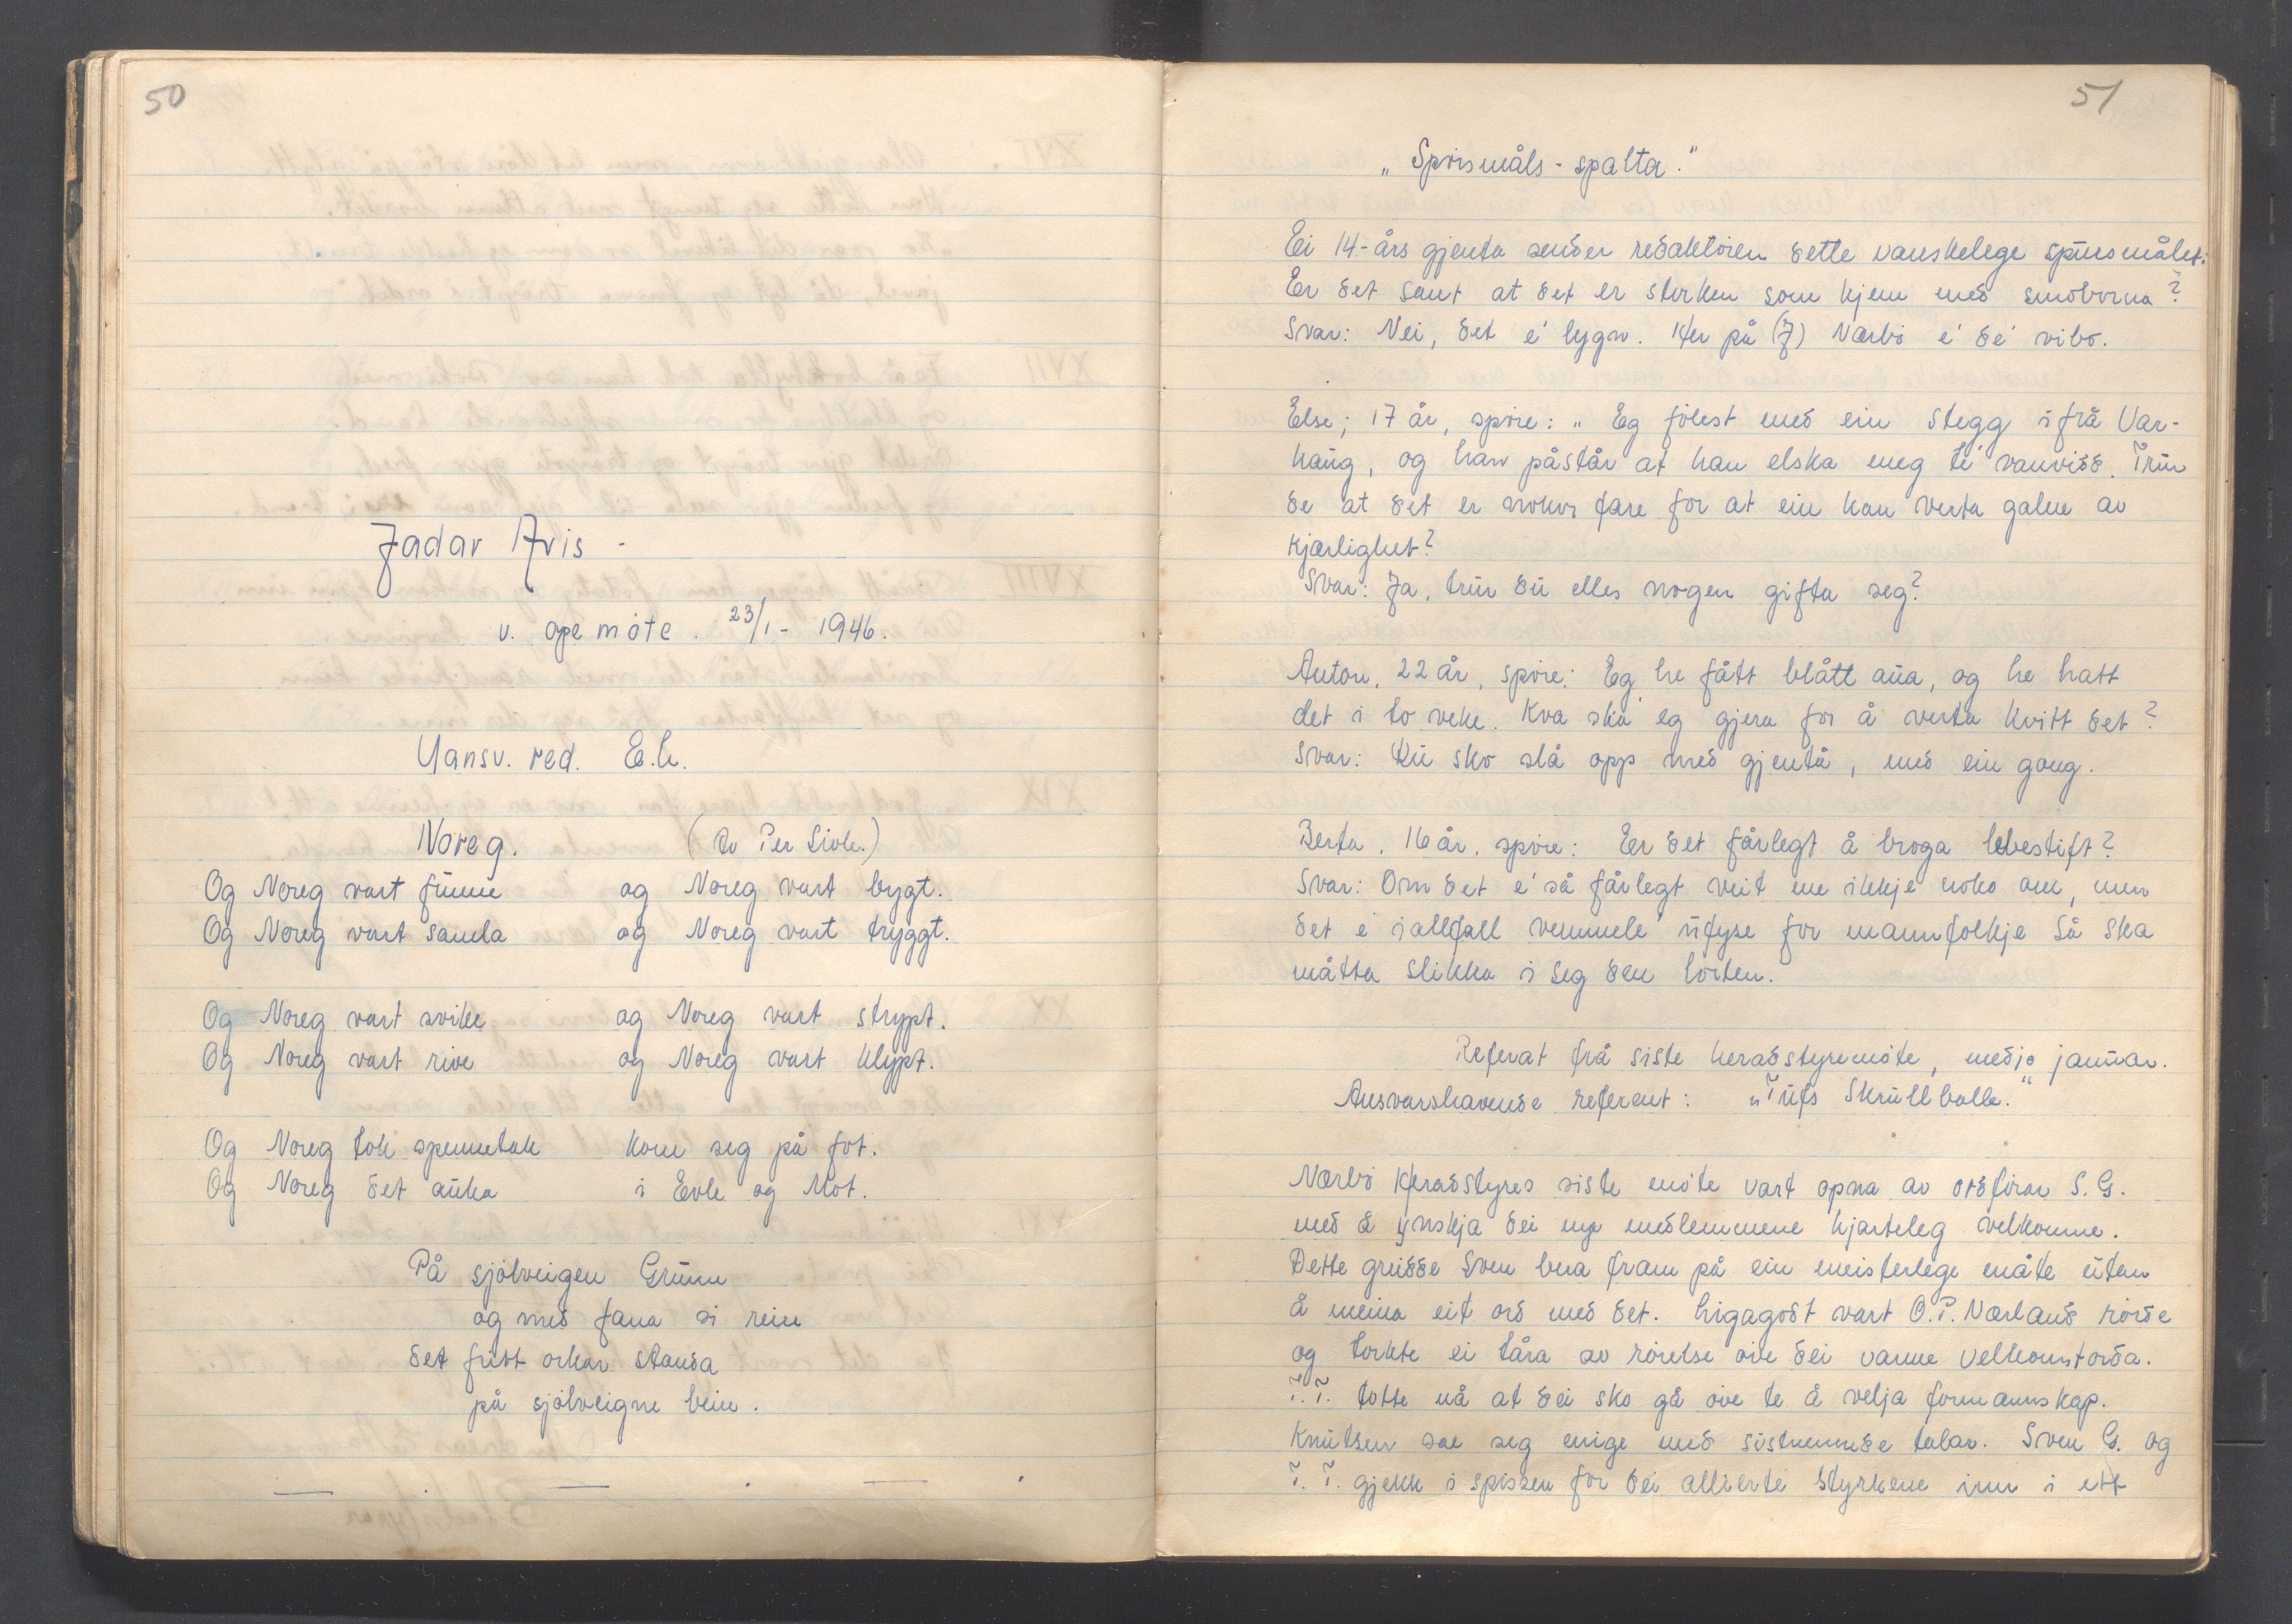 50
Jadar Avis -
v. ope møte. 23/1 - 1946.
Uansv. red. E.H.
Noreg. (Av Per Sivle.)
Og Noreg vart funne og Noreg vart bygt.
Og Noreg vart samla og Noreg vart tryggt.
Og Noreg vart svike og Noreg vart strypt.
Og Noreg vart rive og Noreg vart klypt.
Og Noreg tok spennetak kom seg på fot.
Og Noreg det auka i Evle og Mot.
På sjølveigen Grunn
og med fana si rein
det fritt orkar standa
på sjølveigne bein.
51
„Sprismåls-spalta."
Ei 14-års gjenta sender redaktøren dette vanskelege spursmålet:
Er det sant at det er storken som kjem med småborna?
Svar: Nei, det e' lygn. Her på (J) Nærbø e' de' vibo.
Else; 17 år, spøre: „Eg følest med ein stegg ifrå Var-
haug, og han påstår at han elska meg te' vanvidd. Trur
de at det er nokor fare for at ein kan verta galne av
kjærlighet?
Svar: Ja, trur du elles nogen gifta seg?
Anton, 22 år, spøre: Eg he fått blått aua, og he hatt
det i to veke. Kva ska' eg gjera for å verta kvitt det?
Svar: Du sko slå opp med gjentå, med ein gong.
Berta, 16 år, spøre: Er det fårlegt å broga lebestift?
Svar: Om det e' så fårlegt veit me ikkje noko om, men
det e iallfall vemmele' ufyse for mannfolkje så ska
måtta slikka i seg den lorten.
Referat frå siste heradstyremøte, medjo januar.
Ansvarshavende referent: „Tufs Skrullballe."
Nærbø Heradstyres siste møte vart opna av ordførar S. G.
med å ynskja dei nye medlemmene hjarteleg velkomne.
Dette greidde Sven bera fram på ein meisterlege måte utan
å meina eit ord med det. Likagodt vart O. P. Nærland rørde
og torkte ei tåra av rørelse øve dei varme velkomstorda.
T. T. totte nå at dei sko gå øve te å velja formannskap.
Knutsen sae seg enige med sistnemnde talar. Sven G. og
T. T. gjekk i spissen for dei allierte styrkene inn i ett